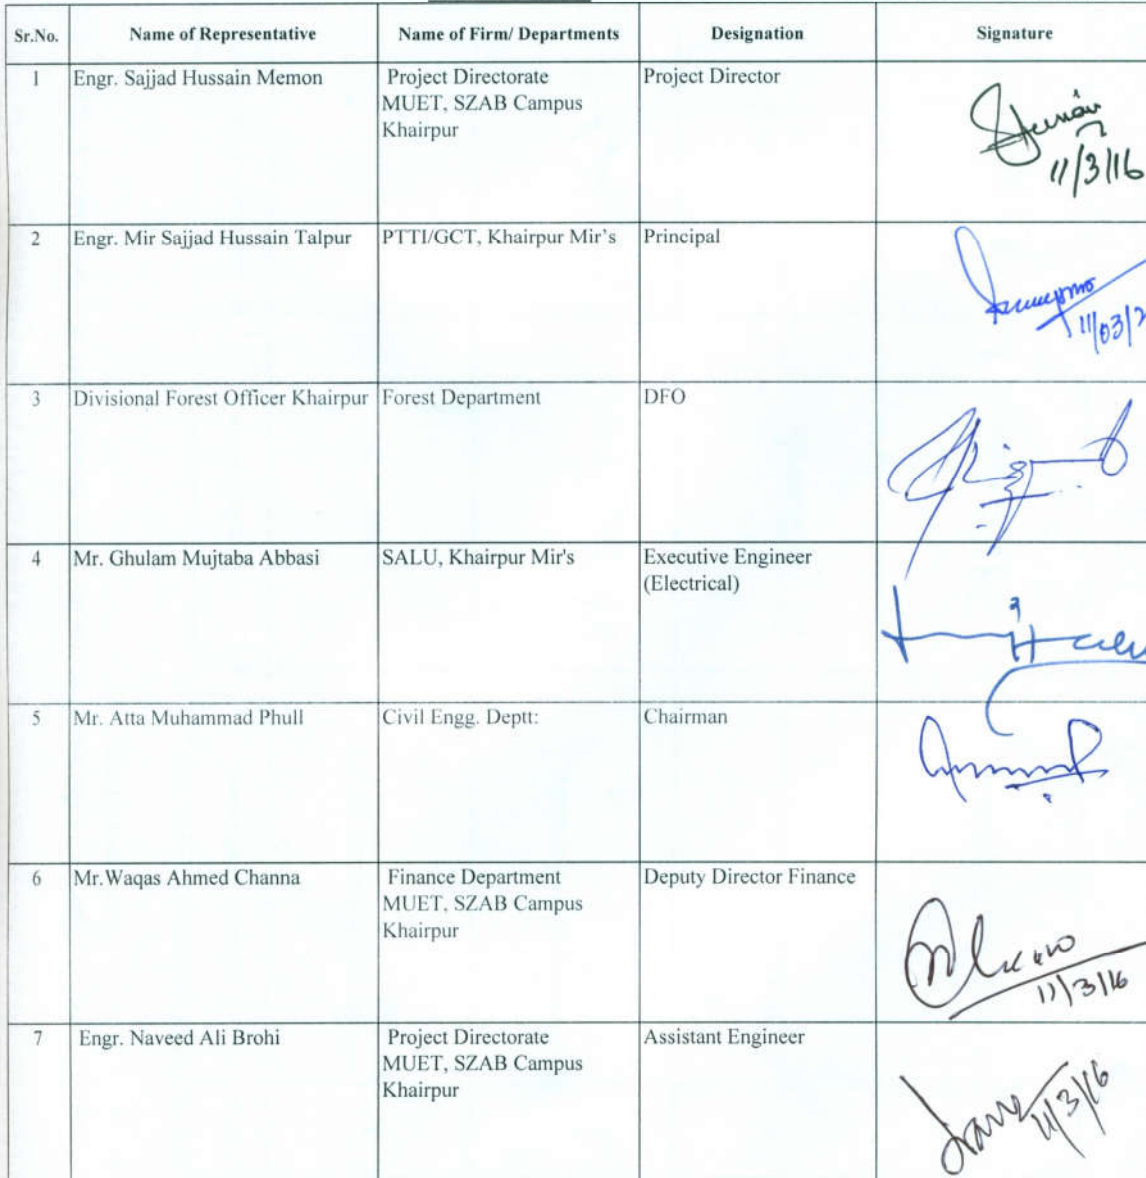 Sr.No. Name of Representative Name of Firm/ Departments Designation Signature
1 Engr. Sajjad Hussain Memon Project Directorate Project Director
MUET, SZAB Campus
Khairpur
11/3/16
2 Engr. Mir Sajjad Hussain Talpur PTTI/GCT, Khairpur Mir's Principal
11/03/2
3 Divisional Forest Officer Khairpur Forest Department DFO
4 Mr. Ghulam Mujtaba Abbasi SALU, Khairpur Mir's Executive Engineer
(Electrical)
5 Mr. Atta Muhammad Phull Civil Engg. Deptt: Chairman
6 Mr.Waqas Ahmed Channa Finance Department Deputy Director Finance
MUET, SZAB Campus
Khairpur
11/3/16
7 Engr. Naveed Ali Brohi Project Directorate Assistant Engineer
MUET, SZAB Campus
Khairpur
11/3/16